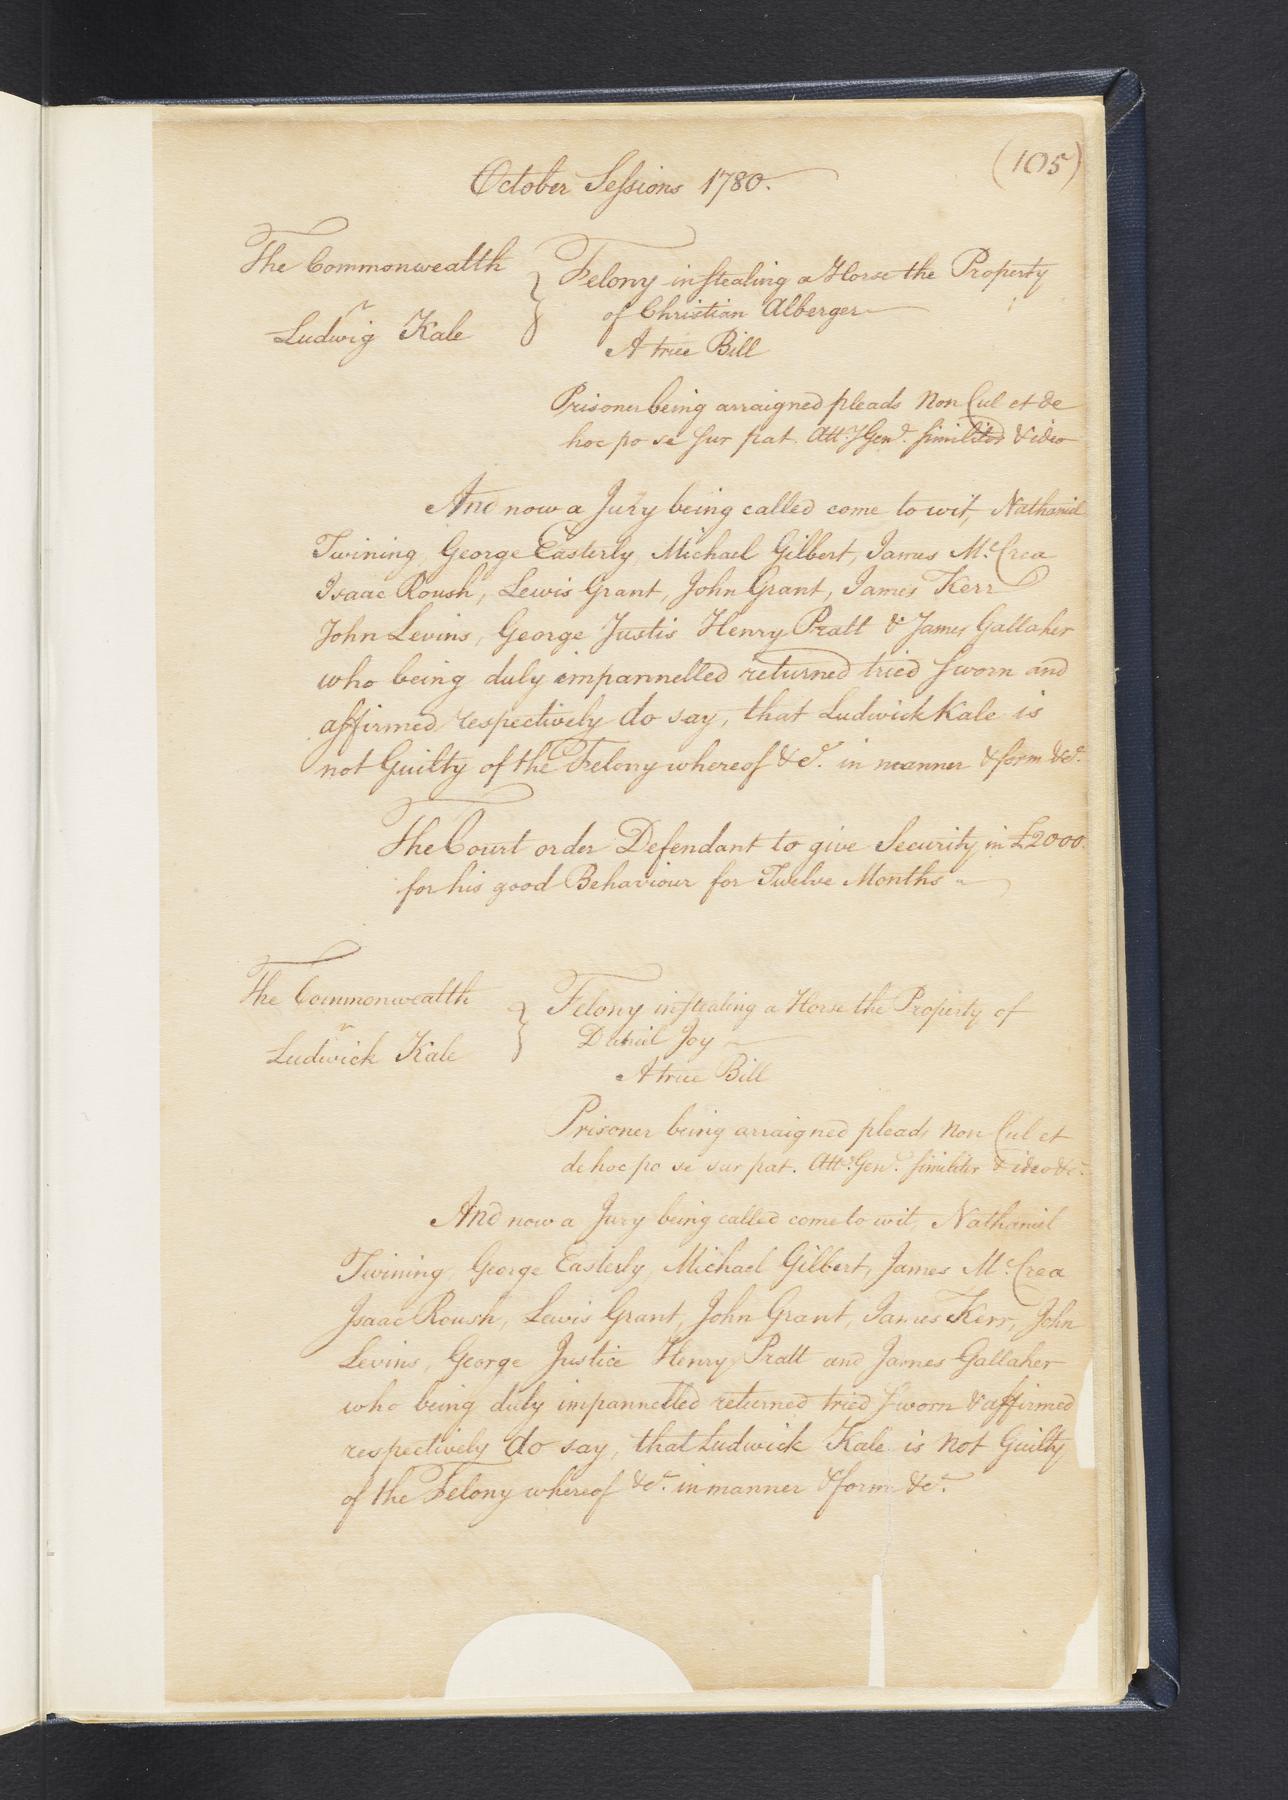 (105)
October Sessions 1780.
The Commonwealth
vs
Ludwig Kale
Felony in stealing a Horse the Property
of Christian Alberger
A true Bill
Prisoner being arraigned pleads Non Cul et de
hoc po se sur pat. Atty Genl. similiter & ideo
And now a Jury being called come to wit, Nathaniel
Twining, George Easterly, Michael Gilbert, James McCrea
Isaac Roush, Lewis Grant, John Grant, James Kerr
John Levins, George Justis Henry Pratt & James Gallaher
who being duly impannelled returned tried sworn and
affirmed respectively do say, that Ludwick Kale is
not Guilty of the Felony whereof &c. in manner & form &c.
The Court order Defendant to give Security in £2000.
for his good Behaviour for Twelve Months
The Commonwealth
vs
Ludwick Kale
Felony in stealing a Horse the Property of
Daniel Joy
A true Bill
Prisoner being arraigned pleads Non Cul et
de hoc po se sur pat. Atty. Genl. similiter & ideo &c.
And now a Jury being called come to wit, Nathaniel
Twining, George Easterly, Michael Gilbert, James McCrea
Isaac Roush, Lewis Grant, John Grant, James Kerr, John
Levins, George Justice Henry Pratt and James Gallaher
who being duly impannelled returned tried sworn & affirmed
respectively do say, that Ludwick Kale is Not Guilty
of the Felony whereof &c. in manner & form &c.